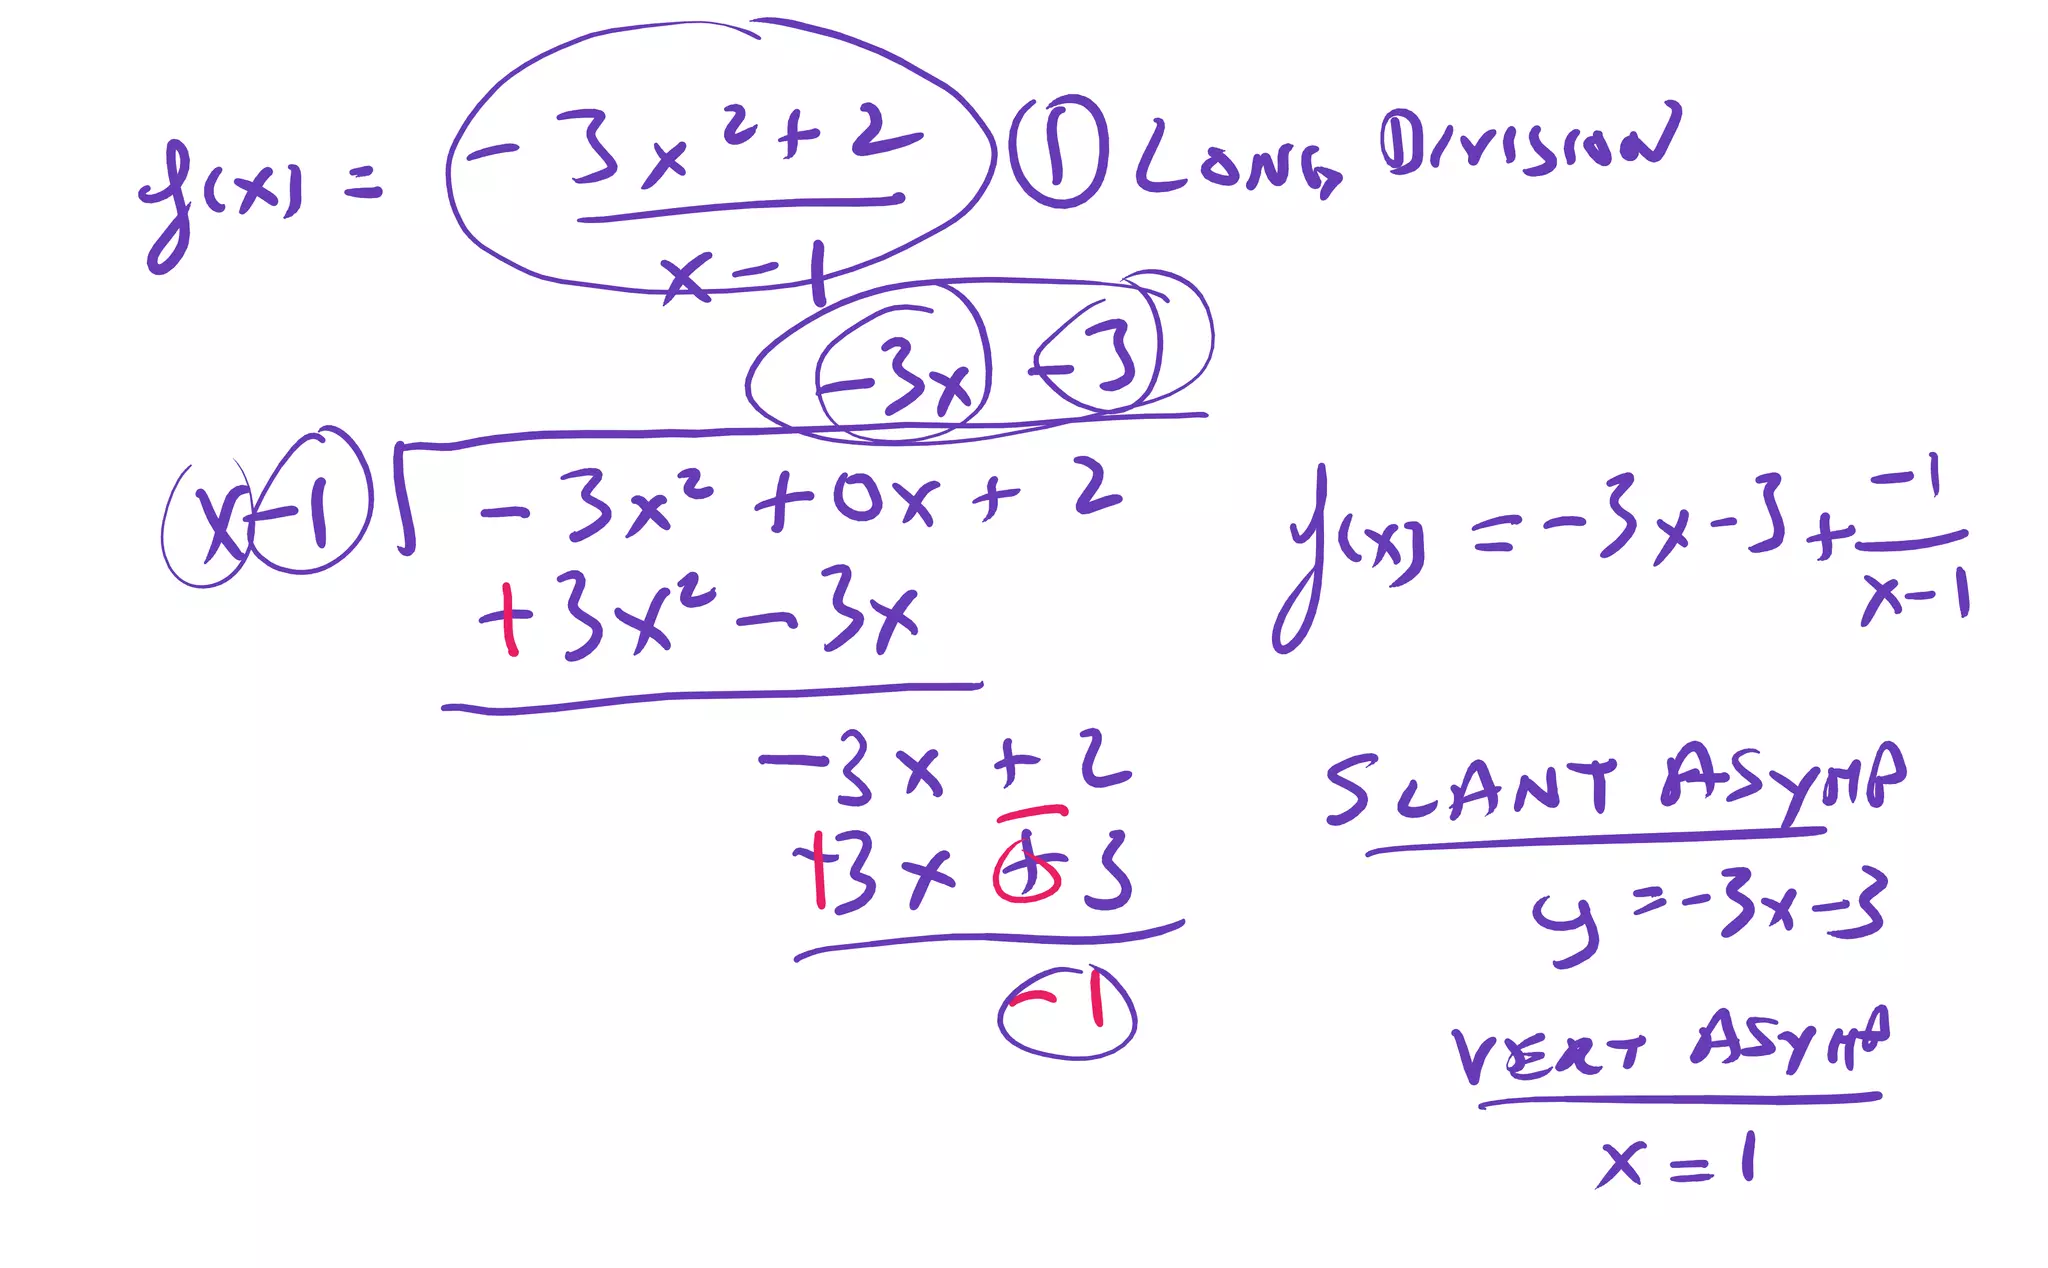 f(x) = -3x²+2 / x-1 ① LONG DIVISION
-3x -3
x-1 ) -3x² +0x + 2
+3x² - 3x
-3x + 2
+3x + 3
-
-1
f(x) = -3x-3 + -1 / x-1
SLANT ASYMP
y = -3x-3
VERT ASYMP
x = 1